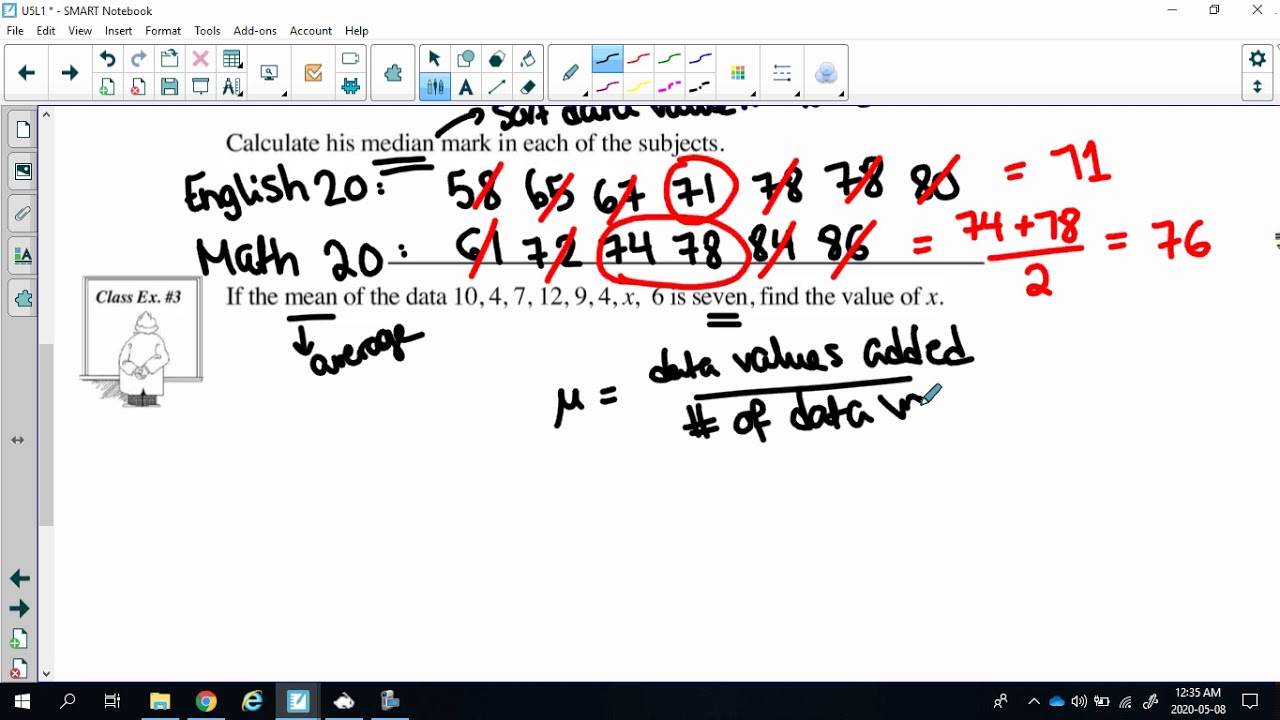 U5L1 * - SMART Notebook
File Edit View Insert Format Tools Add-ons Account Help
Sort data value
Calculate his median mark in each of the subjects.
English 20: 58 65 67 71 78 78 80 = 71
Math 20: 61 72 74 78 84 86 = 74+78 / 2 = 76
Class Ex. #3
If the mean of the data 10, 4, 7, 12, 9, 4, x, 6 is seven, find the value of x.
average
μ = data values added
# of data
12:35 AM
2020-05-08